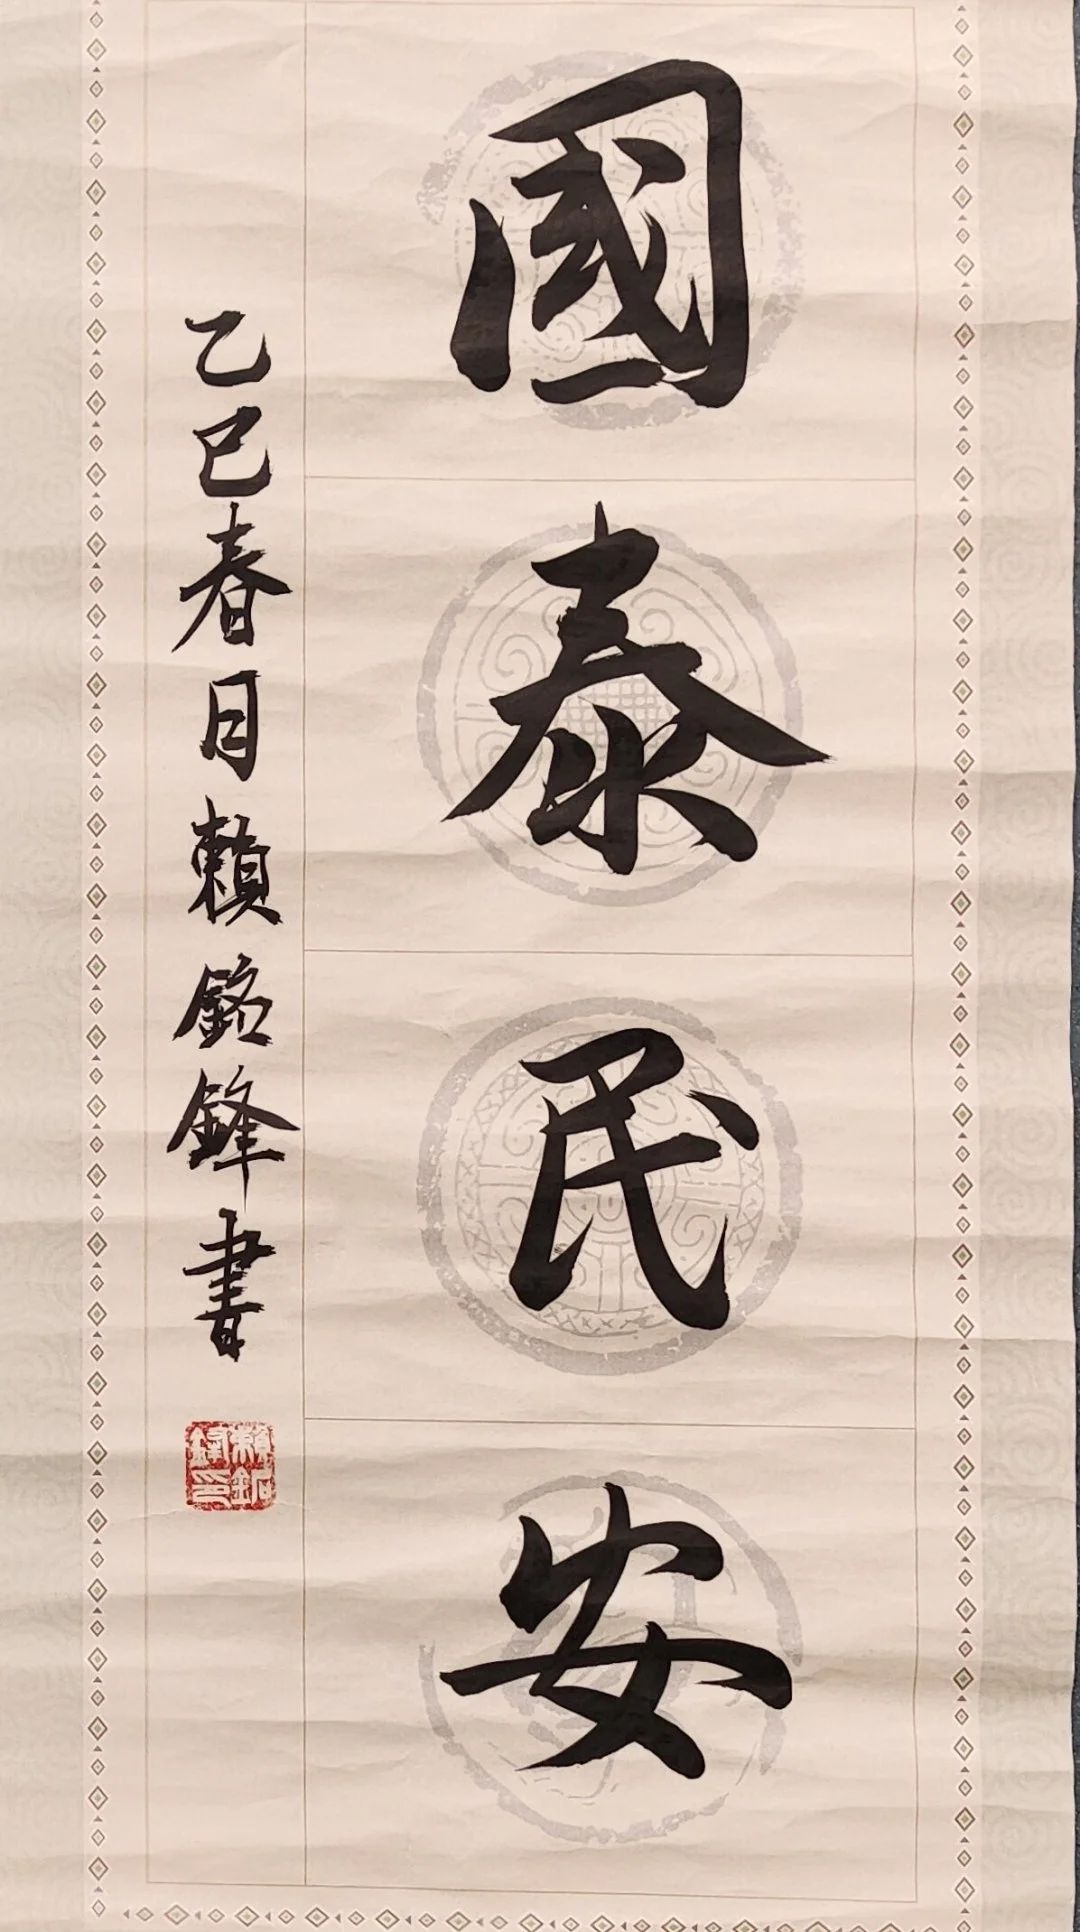 國泰民安
乙巳春月賴銘鋒書
賴銘鋒印